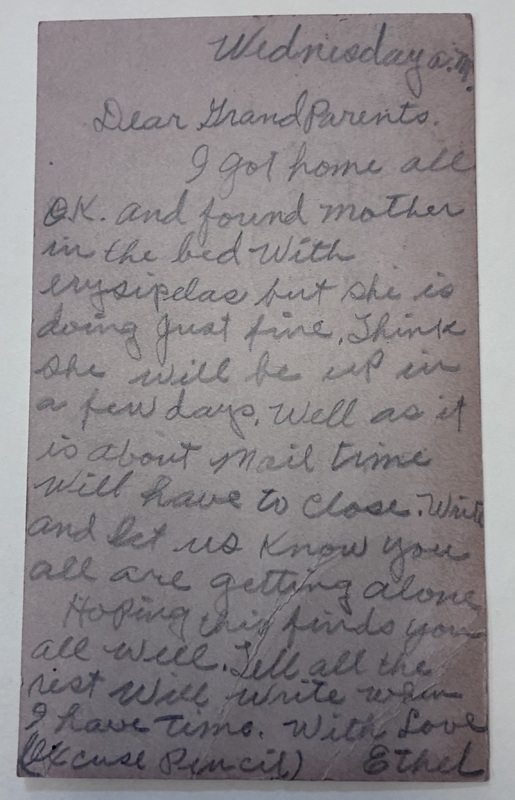 Wednesday a.m.
Dear GrandParents.
I got home all
O.K. and found mother
in the bed With
erysipelas but she is
doing just fine, Think
she will be up in
a few days. Well as it
is about Mail time
Will have to close. Write
and let us Know you
all are getting alone
Hoping this finds you
all Well. Tell all the
rest Will Write when
I have time. With Love
(Excuse Pencil) Ethel